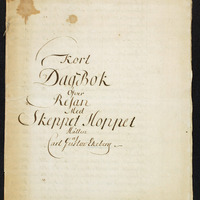 Kort
DagBok
Öfver
Resan
Med
Skeppet Hoppet
Hållen
af
Carl Gustav Ekeberg